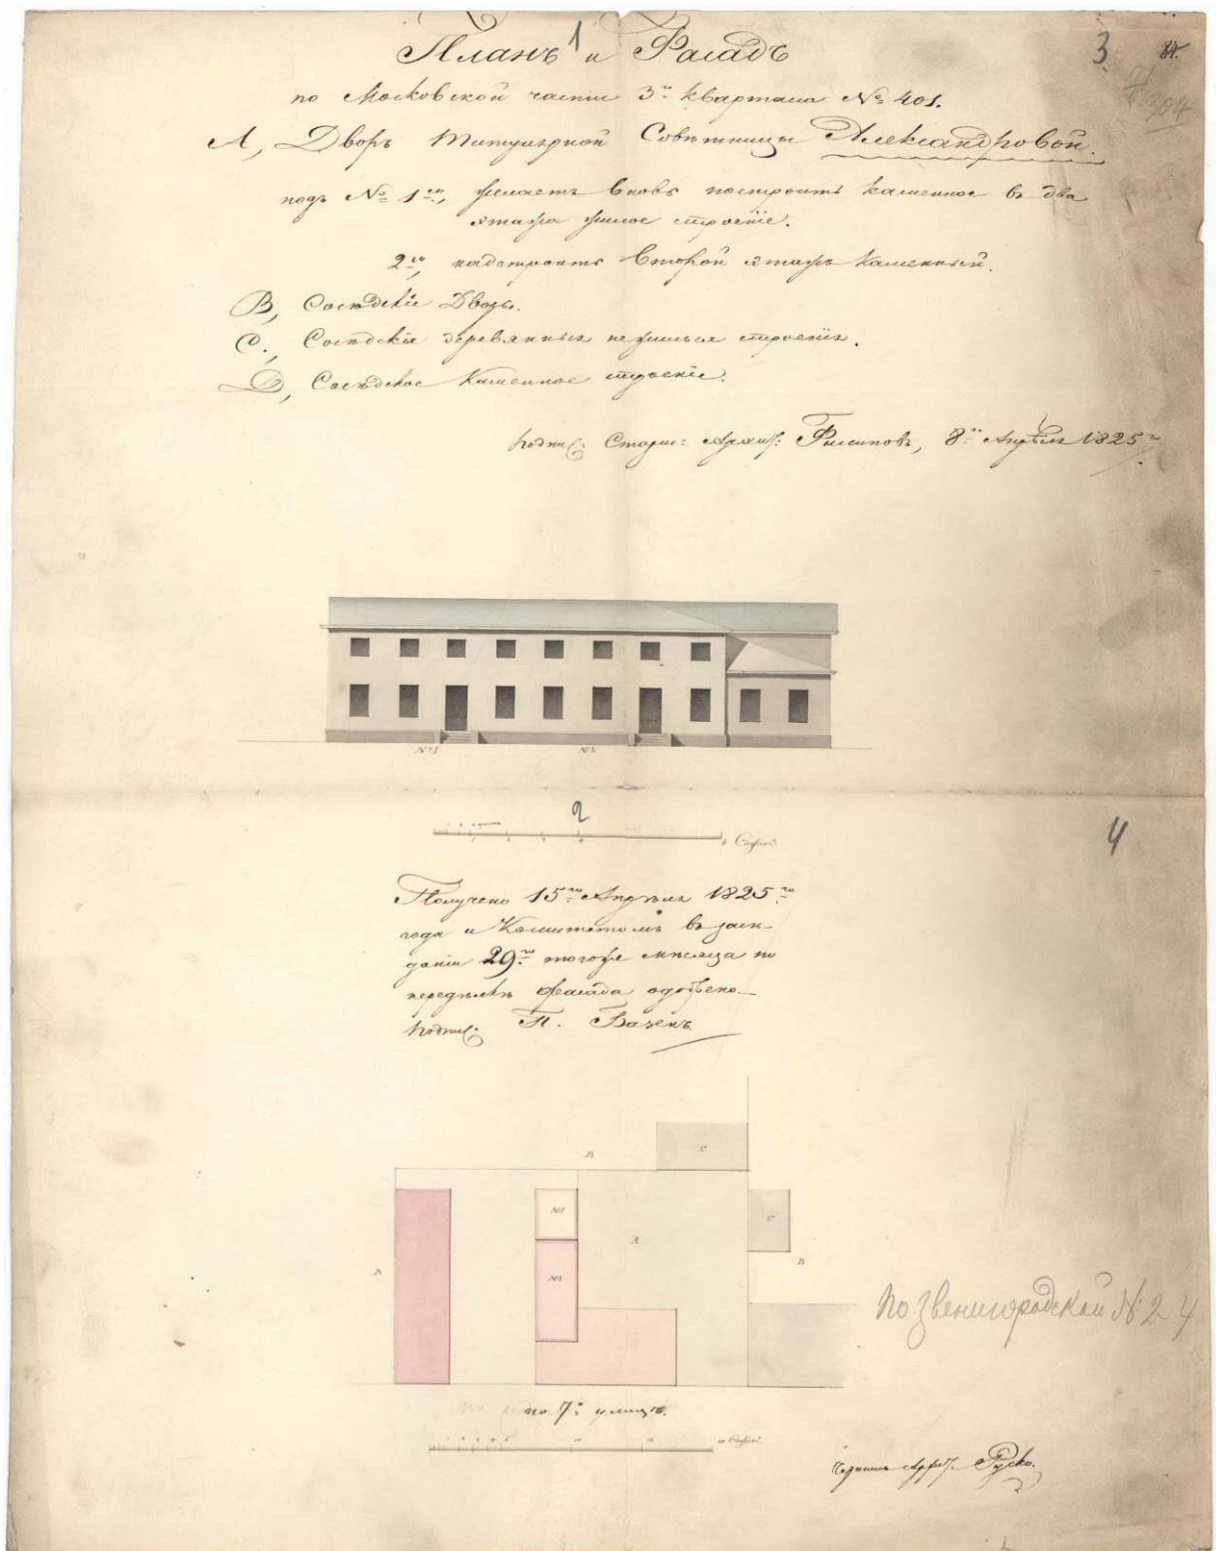 Планъ и Фасадъ
1
3.
84.
по Московской части 3го квартала № 401.
А, Дворъ Титулярной Совѣтницы Александровой.
подъ № 1мъ, желаетъ вновь построить каменное въ два
этажа жилое строеніе.
2мъ, надстроить второй этажъ каменный.
В, Сосѣдскіе Дворы.
С., Сосѣдскія деревянныя нежилыя строенія.
D, Сосѣдское Каменное строеніе.
подпис: Старш: Архит: Филиповъ, 8го Апрѣля 1825го
№1
№2
2
4
Сажен.
Получено 15го Апрѣля 1825го
года и Комитетомъ въ засѣ-
даніи 29го тогоже мѣсяца по
передѣлкѣ фасада одобрено
подпис: П. Базенъ
В
С
№1
А
С
В
№2
В
по Звенигородской № 24
по 7й улицѣ.
Сажен.
Чертилъ Руско.